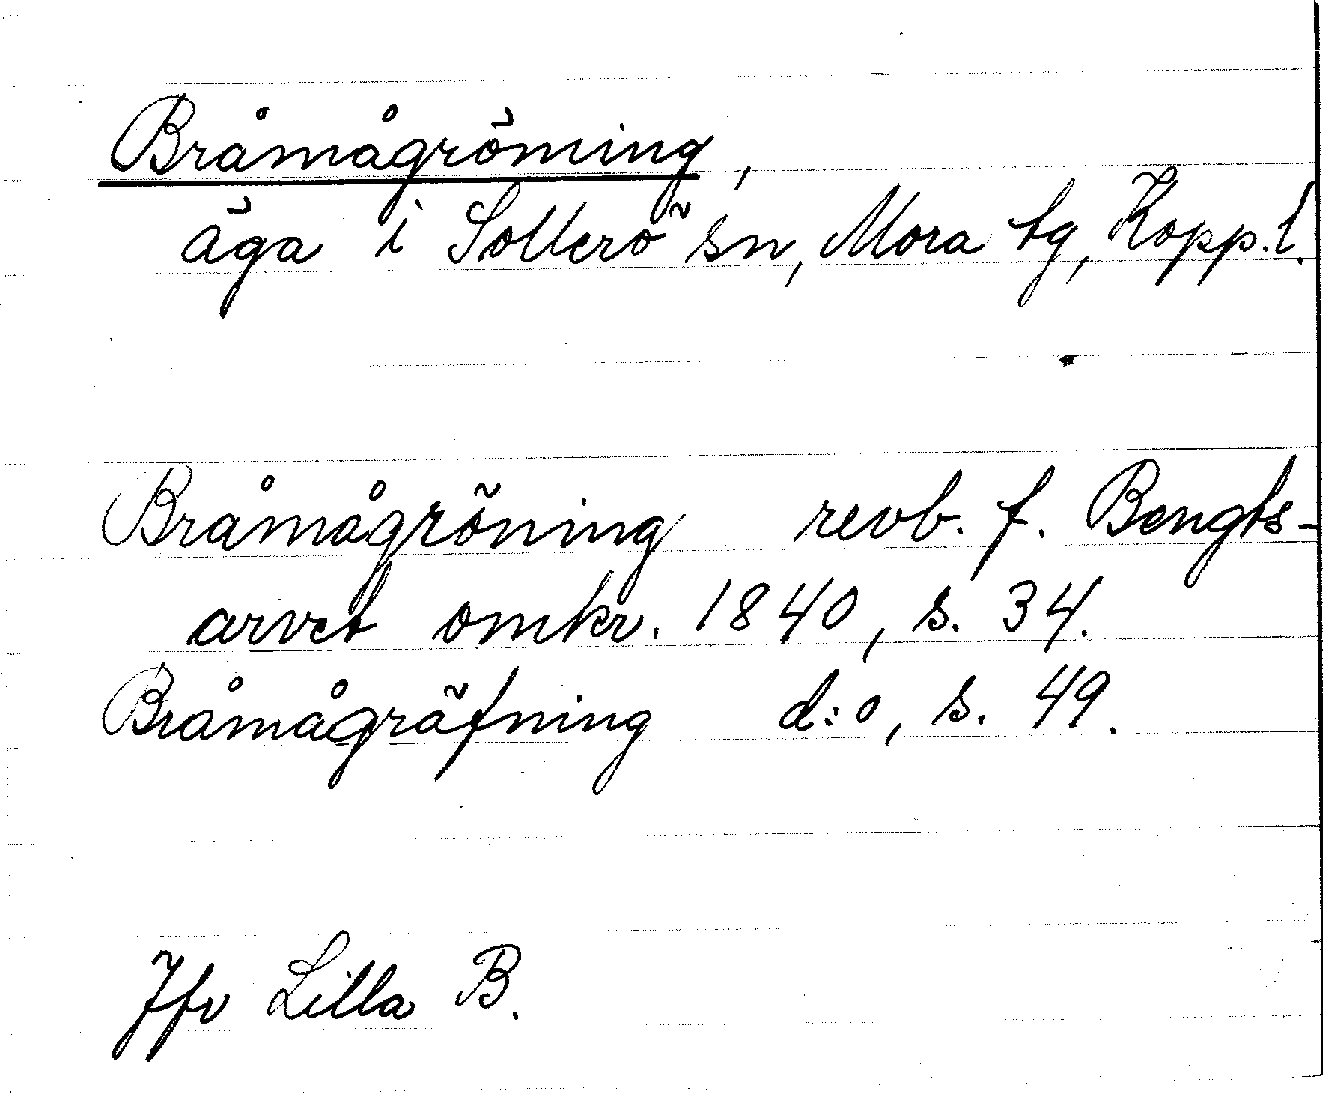 Bråmågröning,
äga i Sollerö sn, Mora tg, Kopp.l.
Bråmågröning revb. f. Bengts-
arvet omkr. 1840, s. 34.
Bråmågräfning d:o, s. 49.
Jfr Lilla B.